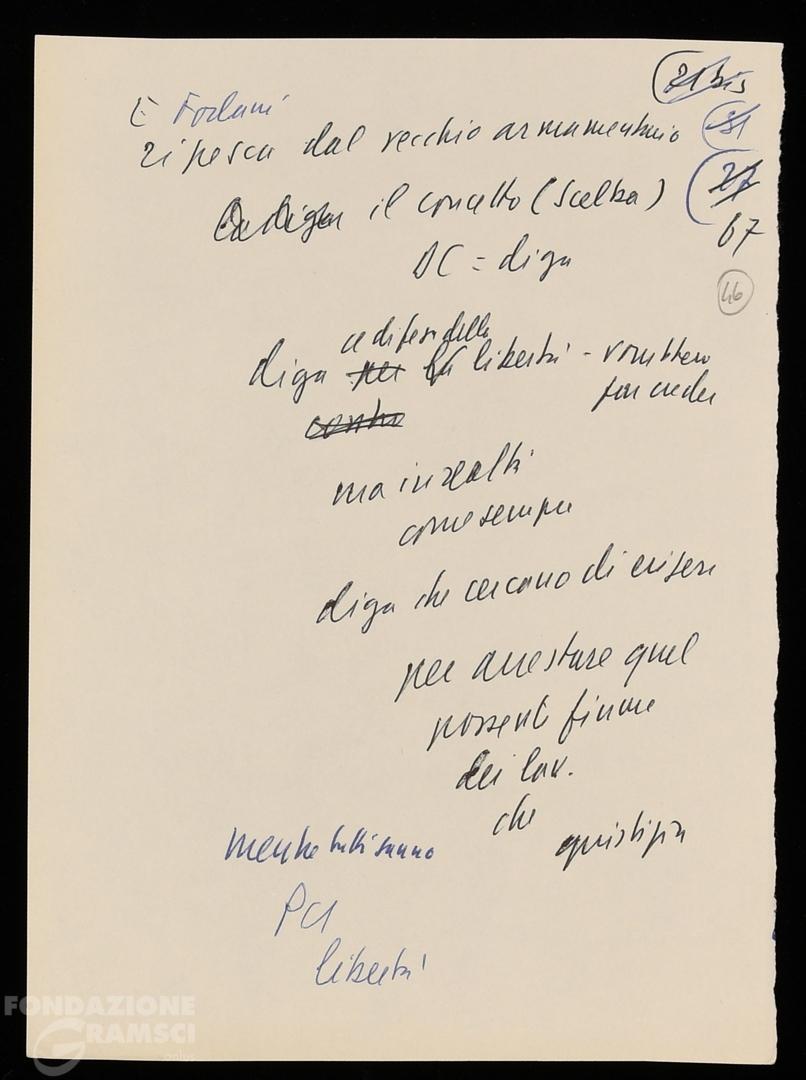 (21 bis
E Forlani
ripesca dal vecchio armamentario
31
La diga il concetto (Scelba)
27
67
DC = diga
46
a difesa della
diga per la libertà - vorrebbero
far creder
contro
ma in realtà
come sempre
diga che cercano di erigere
per arrestare quel
possente fiume
dei lav.
che
mentre tutti sanno
PCI
libertà
FONDAZIONE
GRAMSCI
onlus